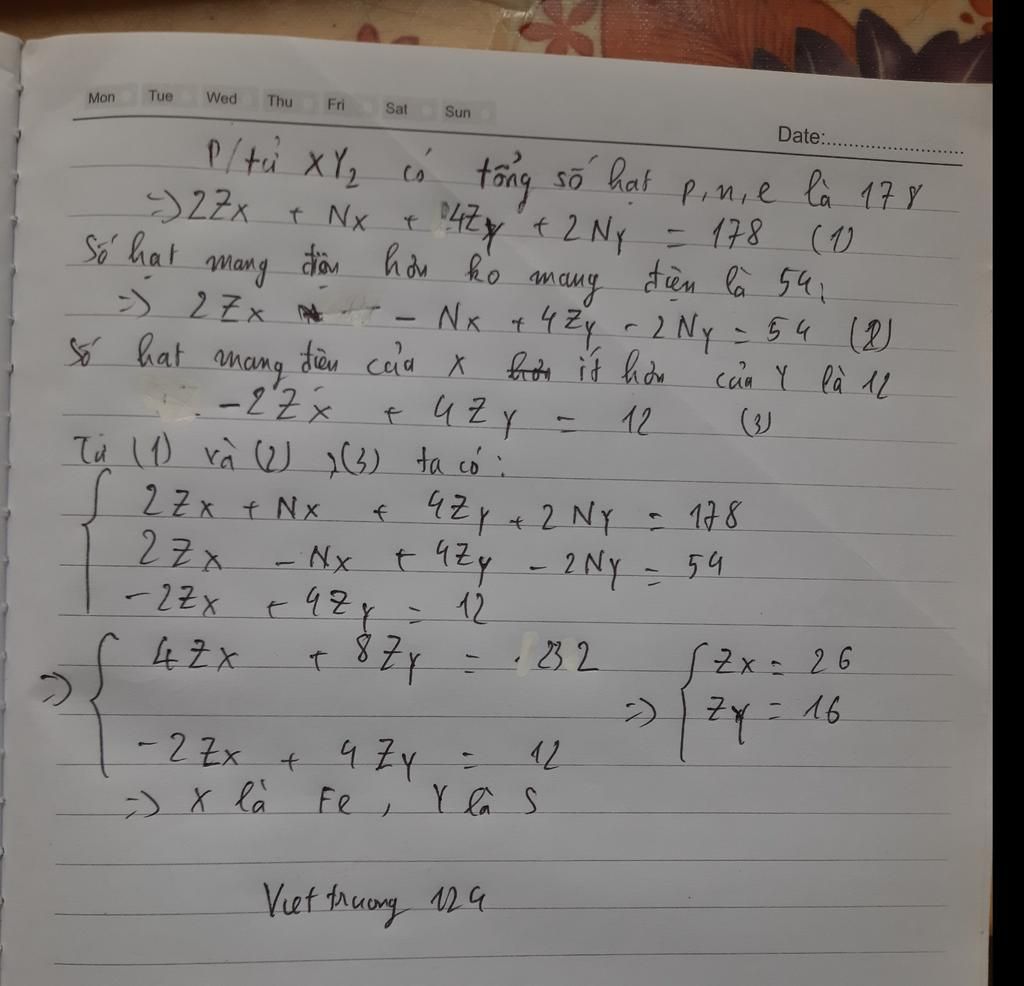 Mon Tue Wed Thu Fri Sat Sun
Date:
P/tử XY₂ có tổng số hạt p,n,e là 178
=> 2Zx + Nx + 4Zy + 2Ny = 178 (1)
Số hạt mang điện hơn ko mang điện là 54,
=> 2Zx - Nx + 4Zy - 2Ny = 54 (2)
Số hạt mang điện của X ít hơn của Y là 12
-2Zx + 4Zy = 12 (3)
Từ (1) và (2), (3) ta có:
2Zx + Nx + 4Zy + 2Ny = 178
2Zx - Nx + 4Zy - 2Ny = 54
-2Zx + 4Zy = 12
=> { 4Zx + 8Zy = 232 => { Zx = 26
Zy = 16
-2Zx + 4Zy = 12
=> X là Fe, Y là S
Viettruong 124